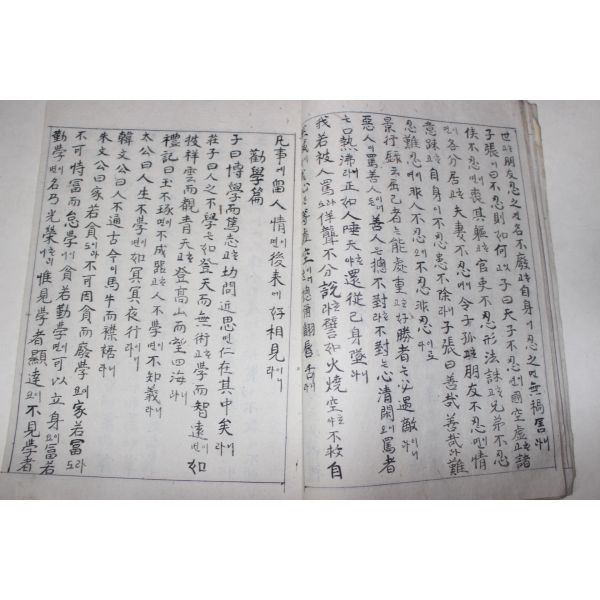 世고朋友忍之면名不廢고自身이忍之면無禍害라니
子張이曰不忍則如何오子曰天子不忍이면國空虛고諸
侯不忍이면喪其軀고官吏不忍이면形法誅고兄弟不忍
이면各分居고夫妻不忍이면令子孤고朋友不忍이면情
意踈고自身이不忍이면患不除라니子張曰善哉善哉라難
忍難忍이여非人不忍이요不忍非人이로다
景行錄云屈己者는能處重고好勝者는必遇敵이라니
惡人이罵善人든善人은摠不對라不對는心清閑이요罵者
는口熱沸라正如人唾天야還從己身墜라니
我若被人罵라도佯聾不分說라譬如火燒空야不救自
我心은等虛空이摠爾飜脣舌이라니
凡事에留人情이면後來에好相見이라니
勸學篇
子曰博學而篤志고切問近思면仁在其中矣라니
莊子曰人之不學은如登天而無術고學而智遠이면如
披祥雲而觀靑天고登高山而望四海라니
禮記曰玉不琢이면不成器고人不學이면不知義라니
太公曰人生不學이면如冥冥夜行이라니
韓文公曰人不通古今이면馬牛而襟裾라니
朱文公曰家若貧이라도不可因貧而廢學이요家若富라도
不可恃富而怠學이니貧若勤學이면可以立身이요富若
勤學이면名乃光榮이라니惟見學者顯達이요不見學者